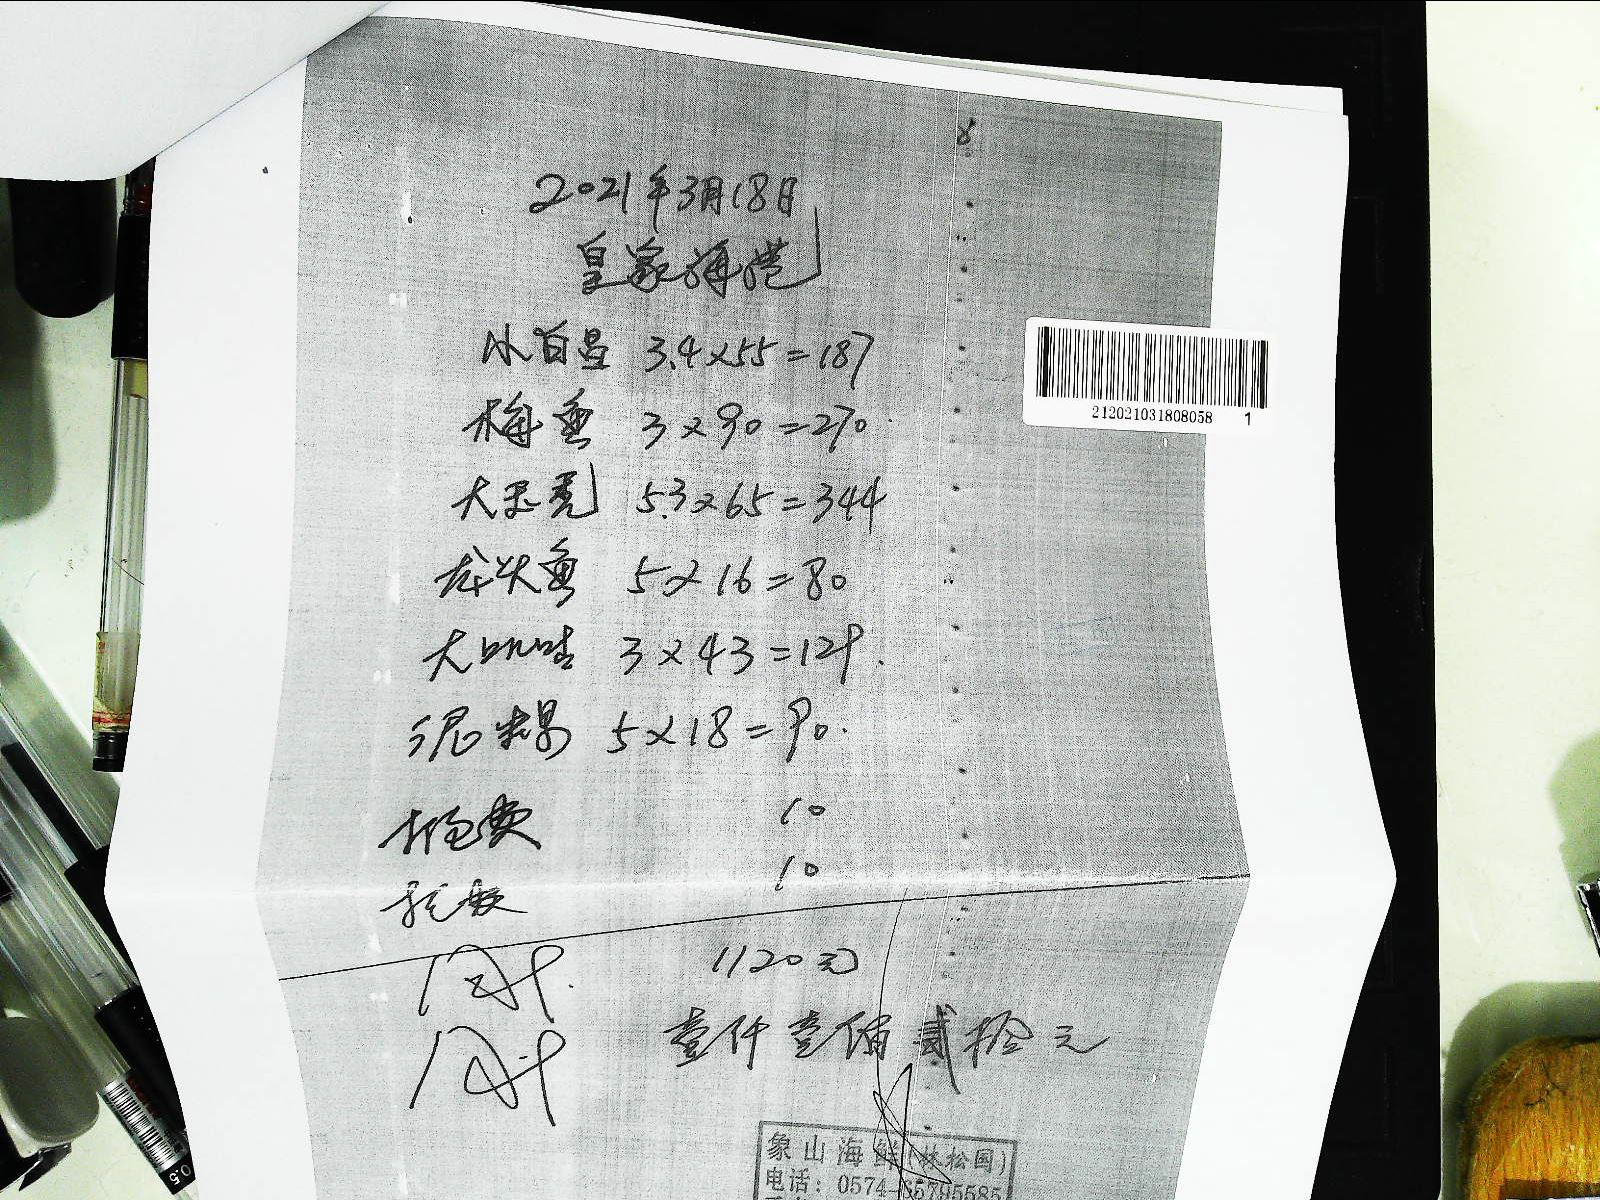 2021年3月18日
皇家海港
小白
3.4×55=187
212021031808058 1
梅鱼 3×90=270
大玉秃 5.3×65=344
龙头鱼 5×16=80
大 3×43=129
泥螺 5×18=90
箱包费 10
10
合计 1120元
合计 壹仟壹佰贰拾元
象山海鲜(林松国)
电话:0574-65795585
0.5